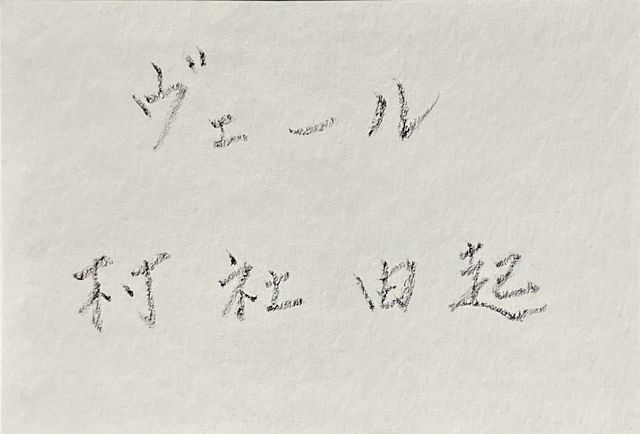 ヴェール
村社由起